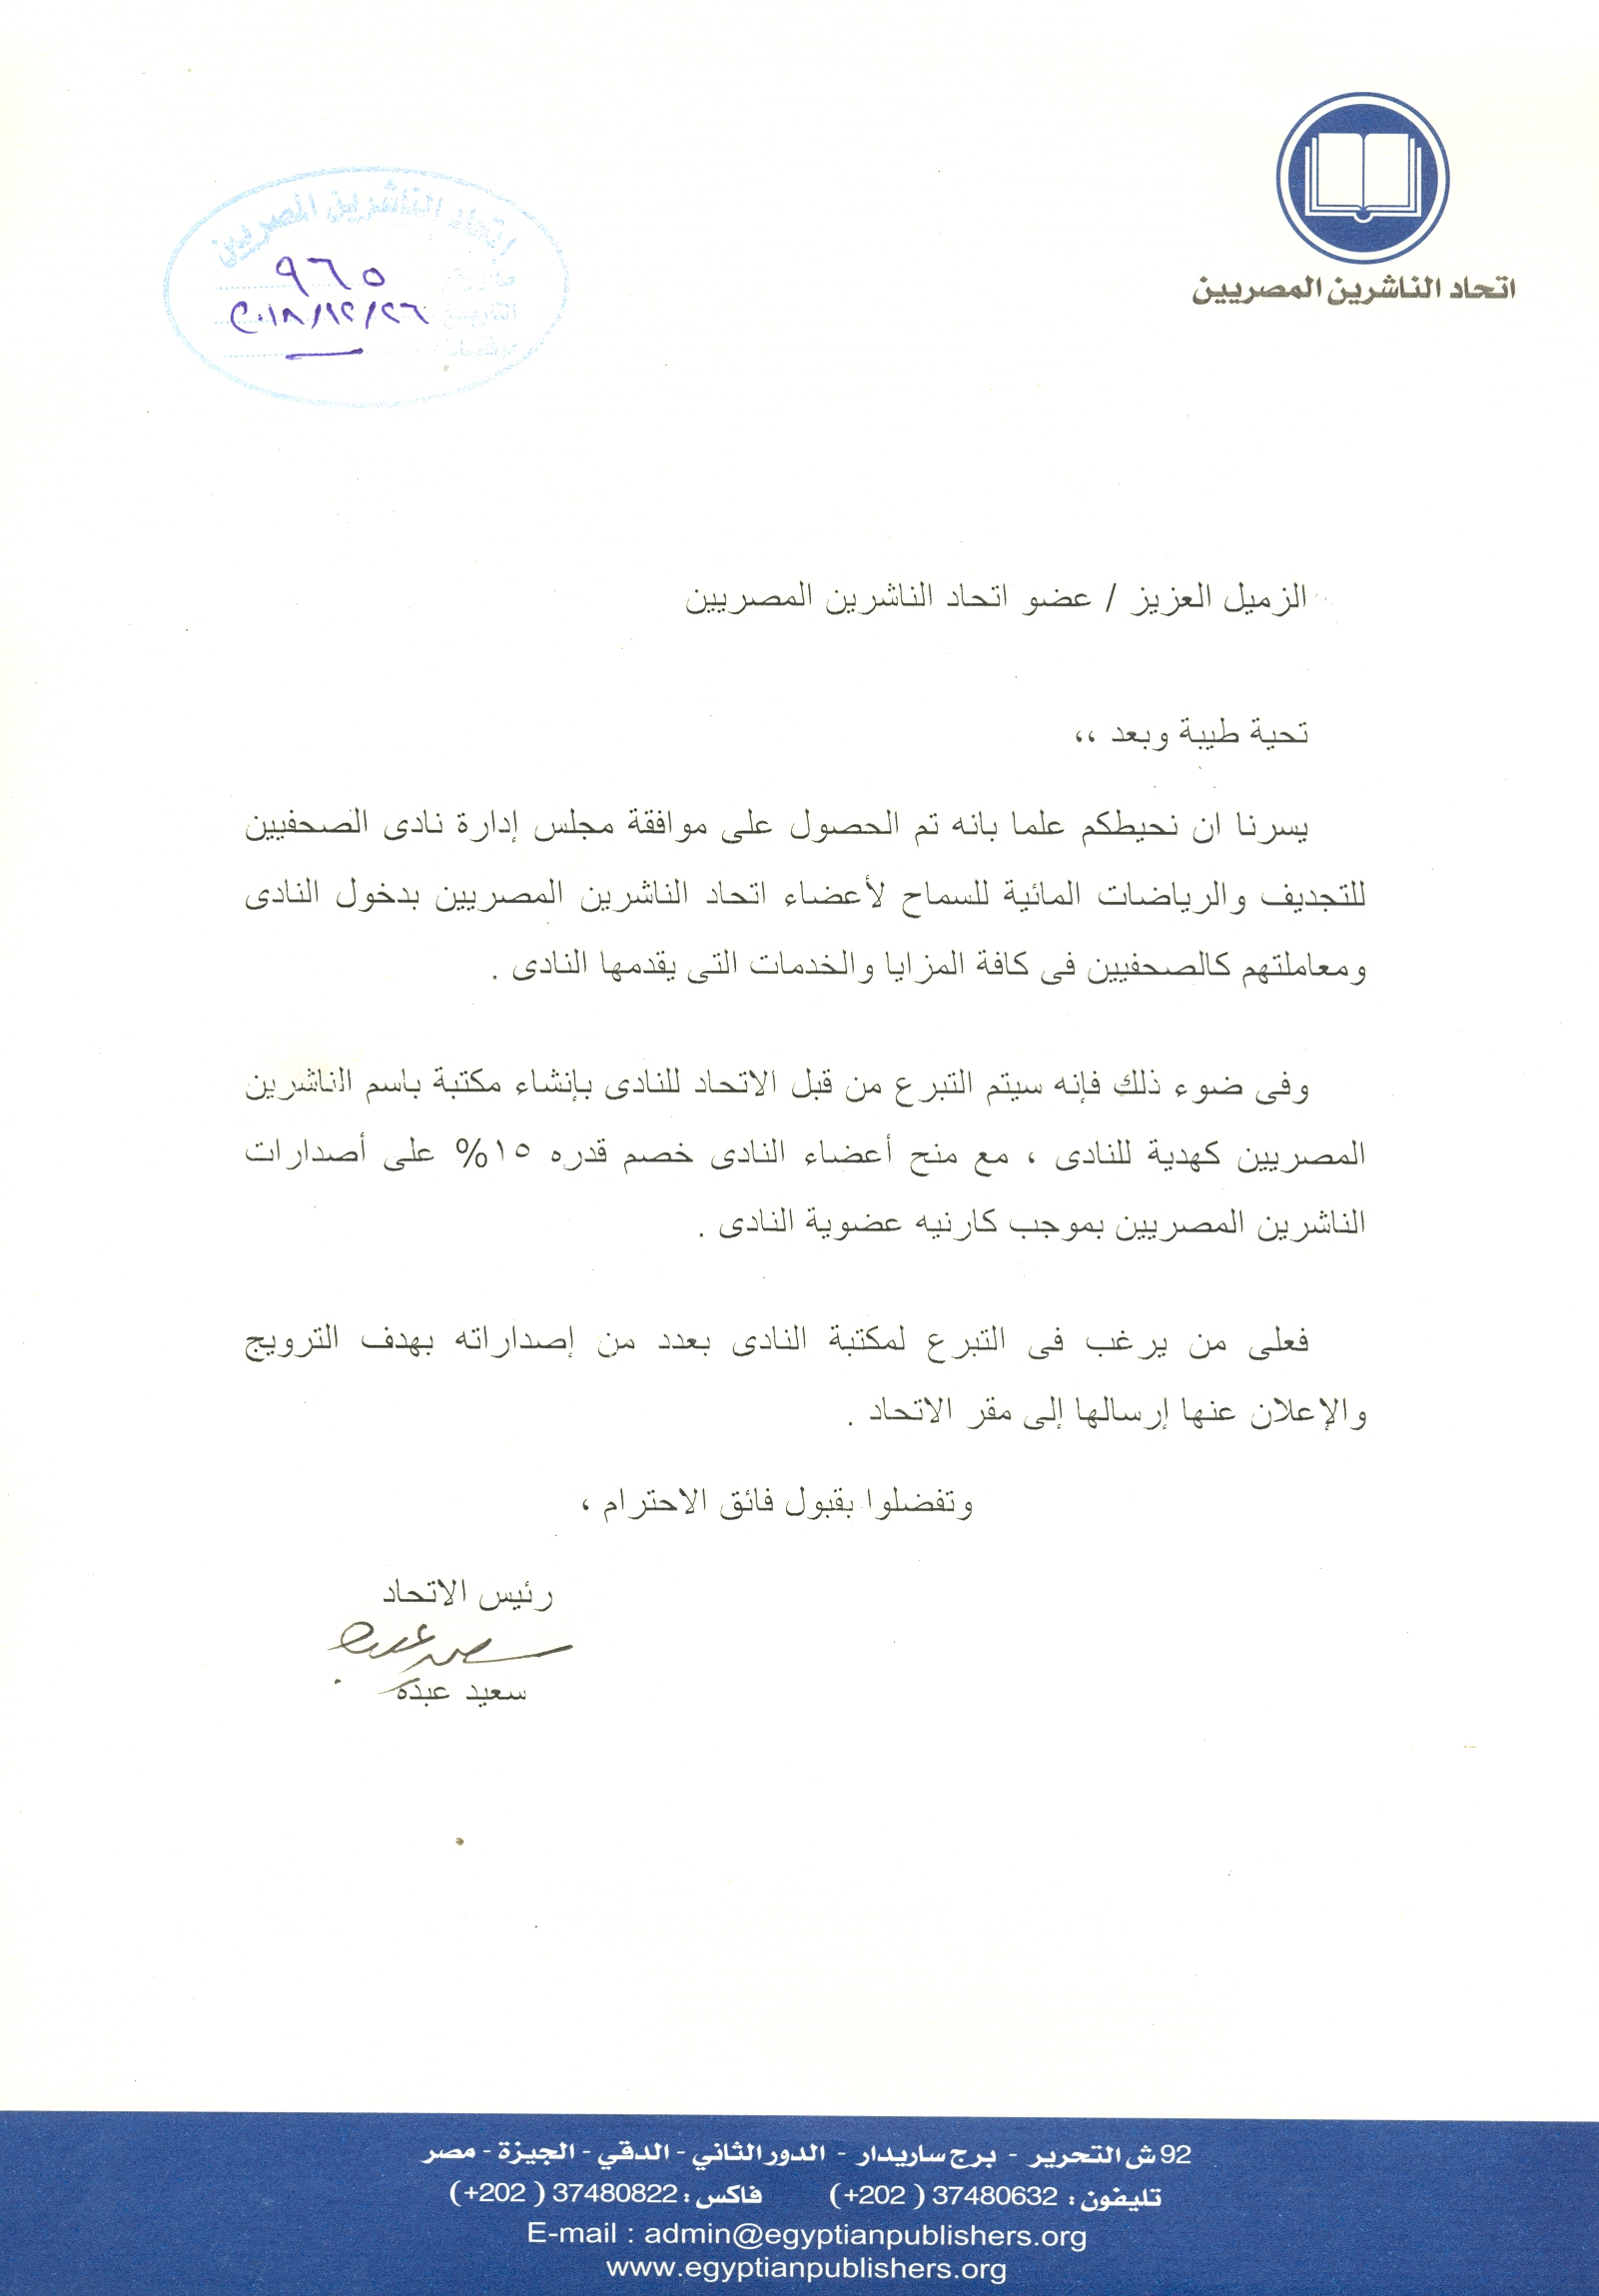 اتحاد الناشرين المصريين
اتحاد الناشرين المصريين
٩٦٥
التاريخ ٢٠١٨/١٢/٢٦
الزميل العزيز / عضو اتحاد الناشرين المصريين
تحية طيبة وبعد ،،
يسرنا ان نحيطكم علما بانه تم الحصول على موافقة مجلس إدارة نادى الصحفيين
للتجديف والرياضات المائية للسماح لأعضاء اتحاد الناشرين المصريين بدخول النادى
ومعاملتهم كالصحفيين فى كافة المزايا والخدمات التى يقدمها النادى .
وفى ضوء ذلك فإنه سيتم التبرع من قبل الاتحاد للنادى بإنشاء مكتبة باسم الناشرين
المصريين كهدية للنادى ، مع منح أعضاء النادى خصم قدره ١٥% على أصدارات
الناشرين المصريين بموجب كارنيه عضوية النادى .
فعلى من يرغب فى التبرع لمكتبة النادى بعدد من إصداراته بهدف الترويج
والإعلان عنها إرسالها إلى مقر الاتحاد .
وتفضلوا بقبول فائق الاحترام ،
رئيس الاتحاد
سعيد عبده
سعيد عبده
92 ش التحرير - برج ساريدار - الدور الثاني - الدقي - الجيزة - مصر
تليفون : 37480632 ( 202+) فاكس : 37480822 ( 202+)
E-mail : admin@egyptianpublishers.org
www.egyptianpublishers.org